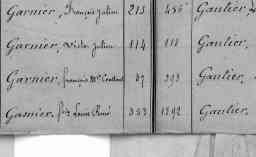 Garnier, François Julien 215 456 Gautier,
Garnier, Victor Julien 114 111 Gautier,
Garnier, François 47 393 Gautier,
Garnier, Louis René 353 1292 Gautier,